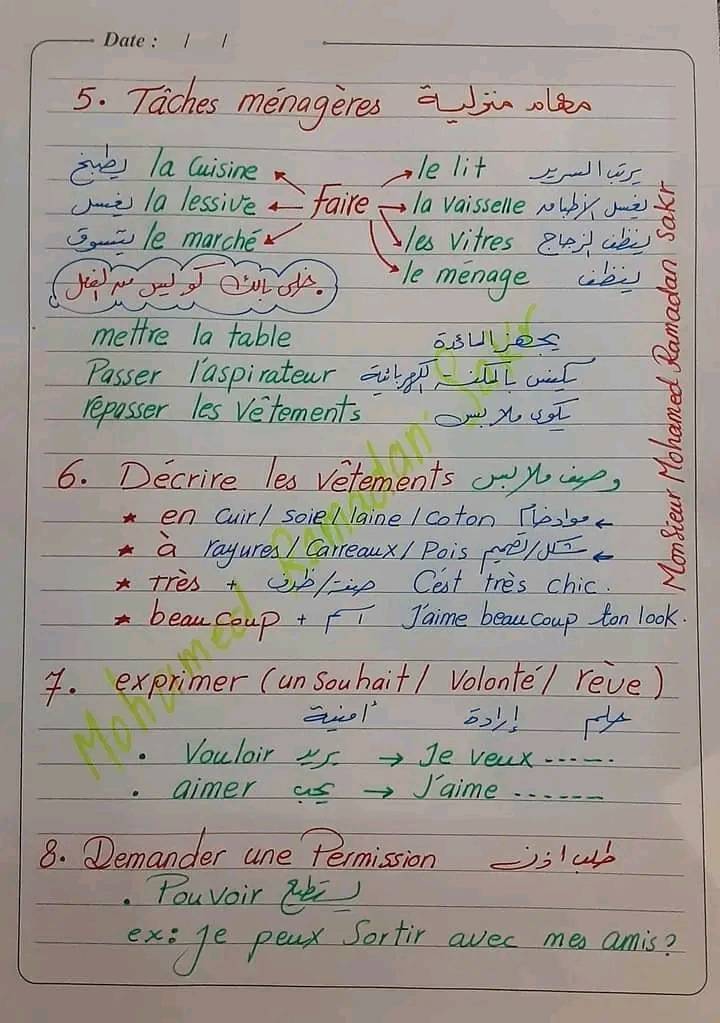 Date : / /
5. Tâches ménagères مهام منزلية
يطبخ la Cuisine le lit يرتب السرير
يغسل la lessive Faire la vaisselle يغسل الأطباق
يتسوق le marché les vitres ينظف الزجاج
خلى بالك كويس من الفعل. le ménage ينظف
mettre la table يجهز المائدة
Passer l'aspirateur يكنس بالمكنسة الكهربائية
repasser les vêtements يكوى ملابس
6. Décrire les vêtements وصف ملابس
* en cuir / soie / laine / coton مواد خام ←
* à rayures / Carreaux / Pois شكل / تصميم ←
* très + صفة / ظرف C'est très chic.
* beaucoup + اسم J'aime beaucoup ton look.
7. exprimer (un souhait / Volonté / rève)
أمنية إرادة حلم
• Vouloir يريد → Je veux ------
• aimer يحب → J'aime ------
8. Demander une Permission طلب اذن
• Pouvoir يستطيع
ex: Je peux Sortir avec mes amis?
Monsieur Mohamed Ramadan Sakr
Mohamed Ramadan Sakr